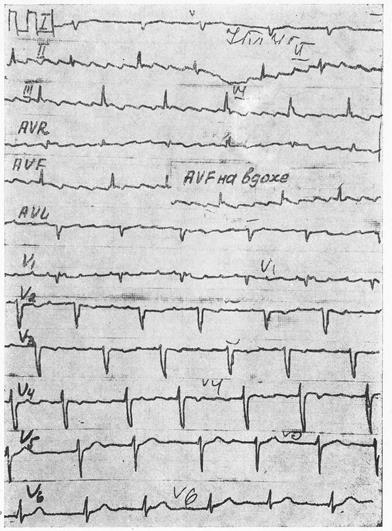 I
II
VI
III
VI
AVR
AVF
AVF на вдохе
AVL
V1 V1
V2
V3
V4 V4
V5 V5
V6 V6